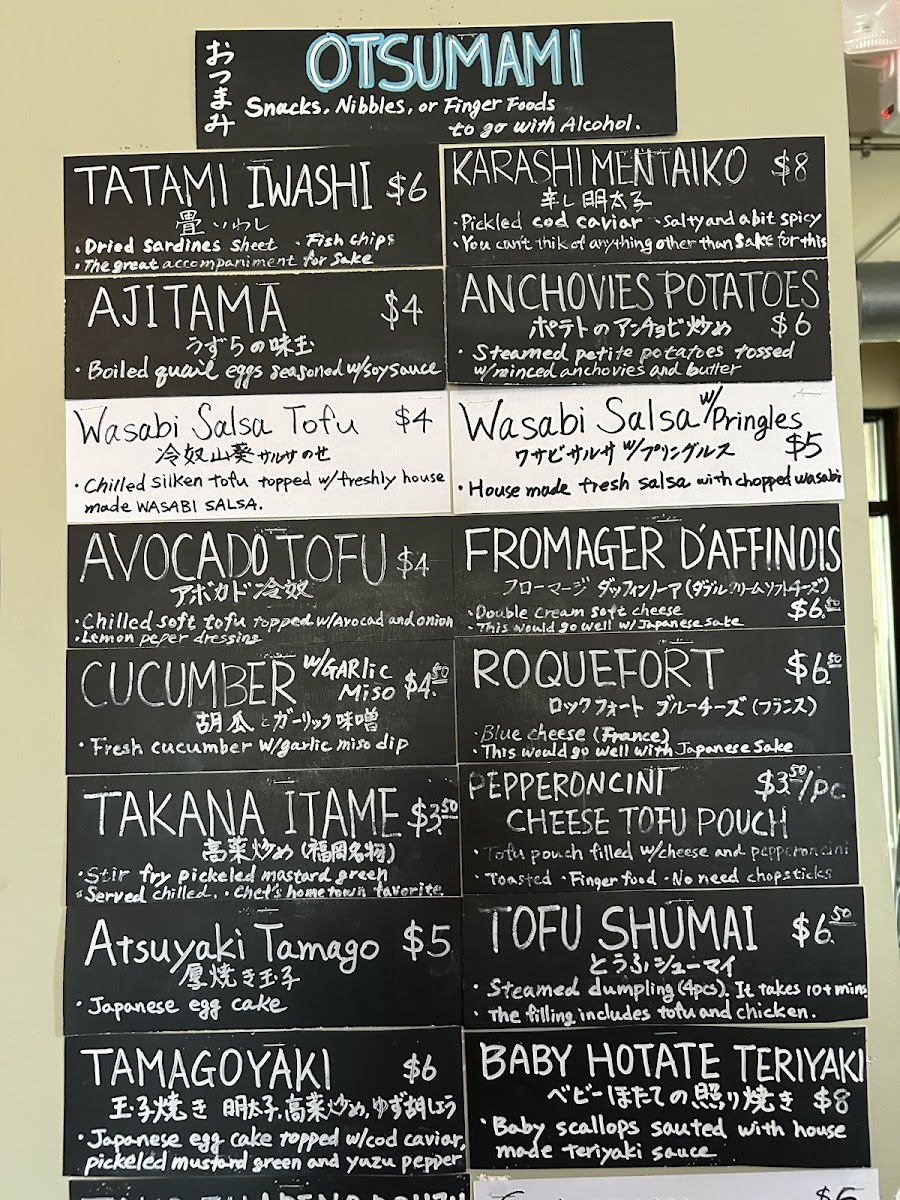 おつまみ
OTSUMAMI
Snacks, Nibbles, or Finger Foods
to go with Alcohol.
TATAMI IWASHI $6
畳いわし
・Dried sardines sheet ・Fish chips
・The great accompaniment for sake
AJITAMA $4
うずらの味玉
・Boiled quail eggs seasoned w/soysauce
Wasabi Salsa Tofu $4
冷奴山葵サルサのせ
・Chilled silken tofu topped w/freshly house
made WASABI SALSA.
AVOCADO TOFU $4
アボカド冷奴
・Chilled soft tofu topped w/Avocad and onion
・Lemon peper dressing
CUCUMBER w/GARLIC MISO $4.50
胡瓜とガーリック味噌
・Fresh cucumber w/garlic miso dip
TAKANA ITAME $3.50
高菜炒め(福岡名物)
・Stir fry pickeled mastard green
・Served chilled. ・Chef's hometown favorite
Atsuyaki Tamago $5
厚焼き玉子
・Japanese egg cake
TAMAGOYAKI $6
玉子焼き 明太子,高菜炒め,ゆず胡しょう
・Japanese egg cake topped w/cod caviar,
pickeled mustard green and yuzu pepper
KARASHI MENTAIKO $8
辛し明太子
・Pickled cod caviar ・Salty and a bit spicy
・You can't thik of anything other than Sake for this
ANCHOVIES POTATOES
ポテトのアンチョビ炒め $6
・Steamed petite potatoes tossed
w/minced anchovies and butter
Wasabi Salsa w/Pringles
ワサビサルサ w/プリングルス $5
・House made fresh salsa with chopped wasabi
FROMAGER D'AFFINOIS
フローマージ ダッフィノーア(ダブルクリームソフトチーズ)
・Double cream soft cheese $6.50
・This would go well w/Japanese sake
ROQUEFORT $6.50
ロックフォート ブルーチーズ(フランス)
・Blue cheese (France)
・This would go well with Japanese sake
PEPPERONCINI $3.50/pc.
CHEESE TOFU POUCH
・Tofu pouch filled w/cheese and pepperoncini
・Toasted ・Finger food ・No need chopsticks
TOFU SHUMAI $6.50
とうふシューマイ
・Steamed dumpling (4pcs). It takes 10+ mins.
・The filling includes tofu and chicken.
BABY HOTATE TERIYAKI
ベビーほたての照り焼き $8
・Baby scallops sauted with house
made teriyaki sauce